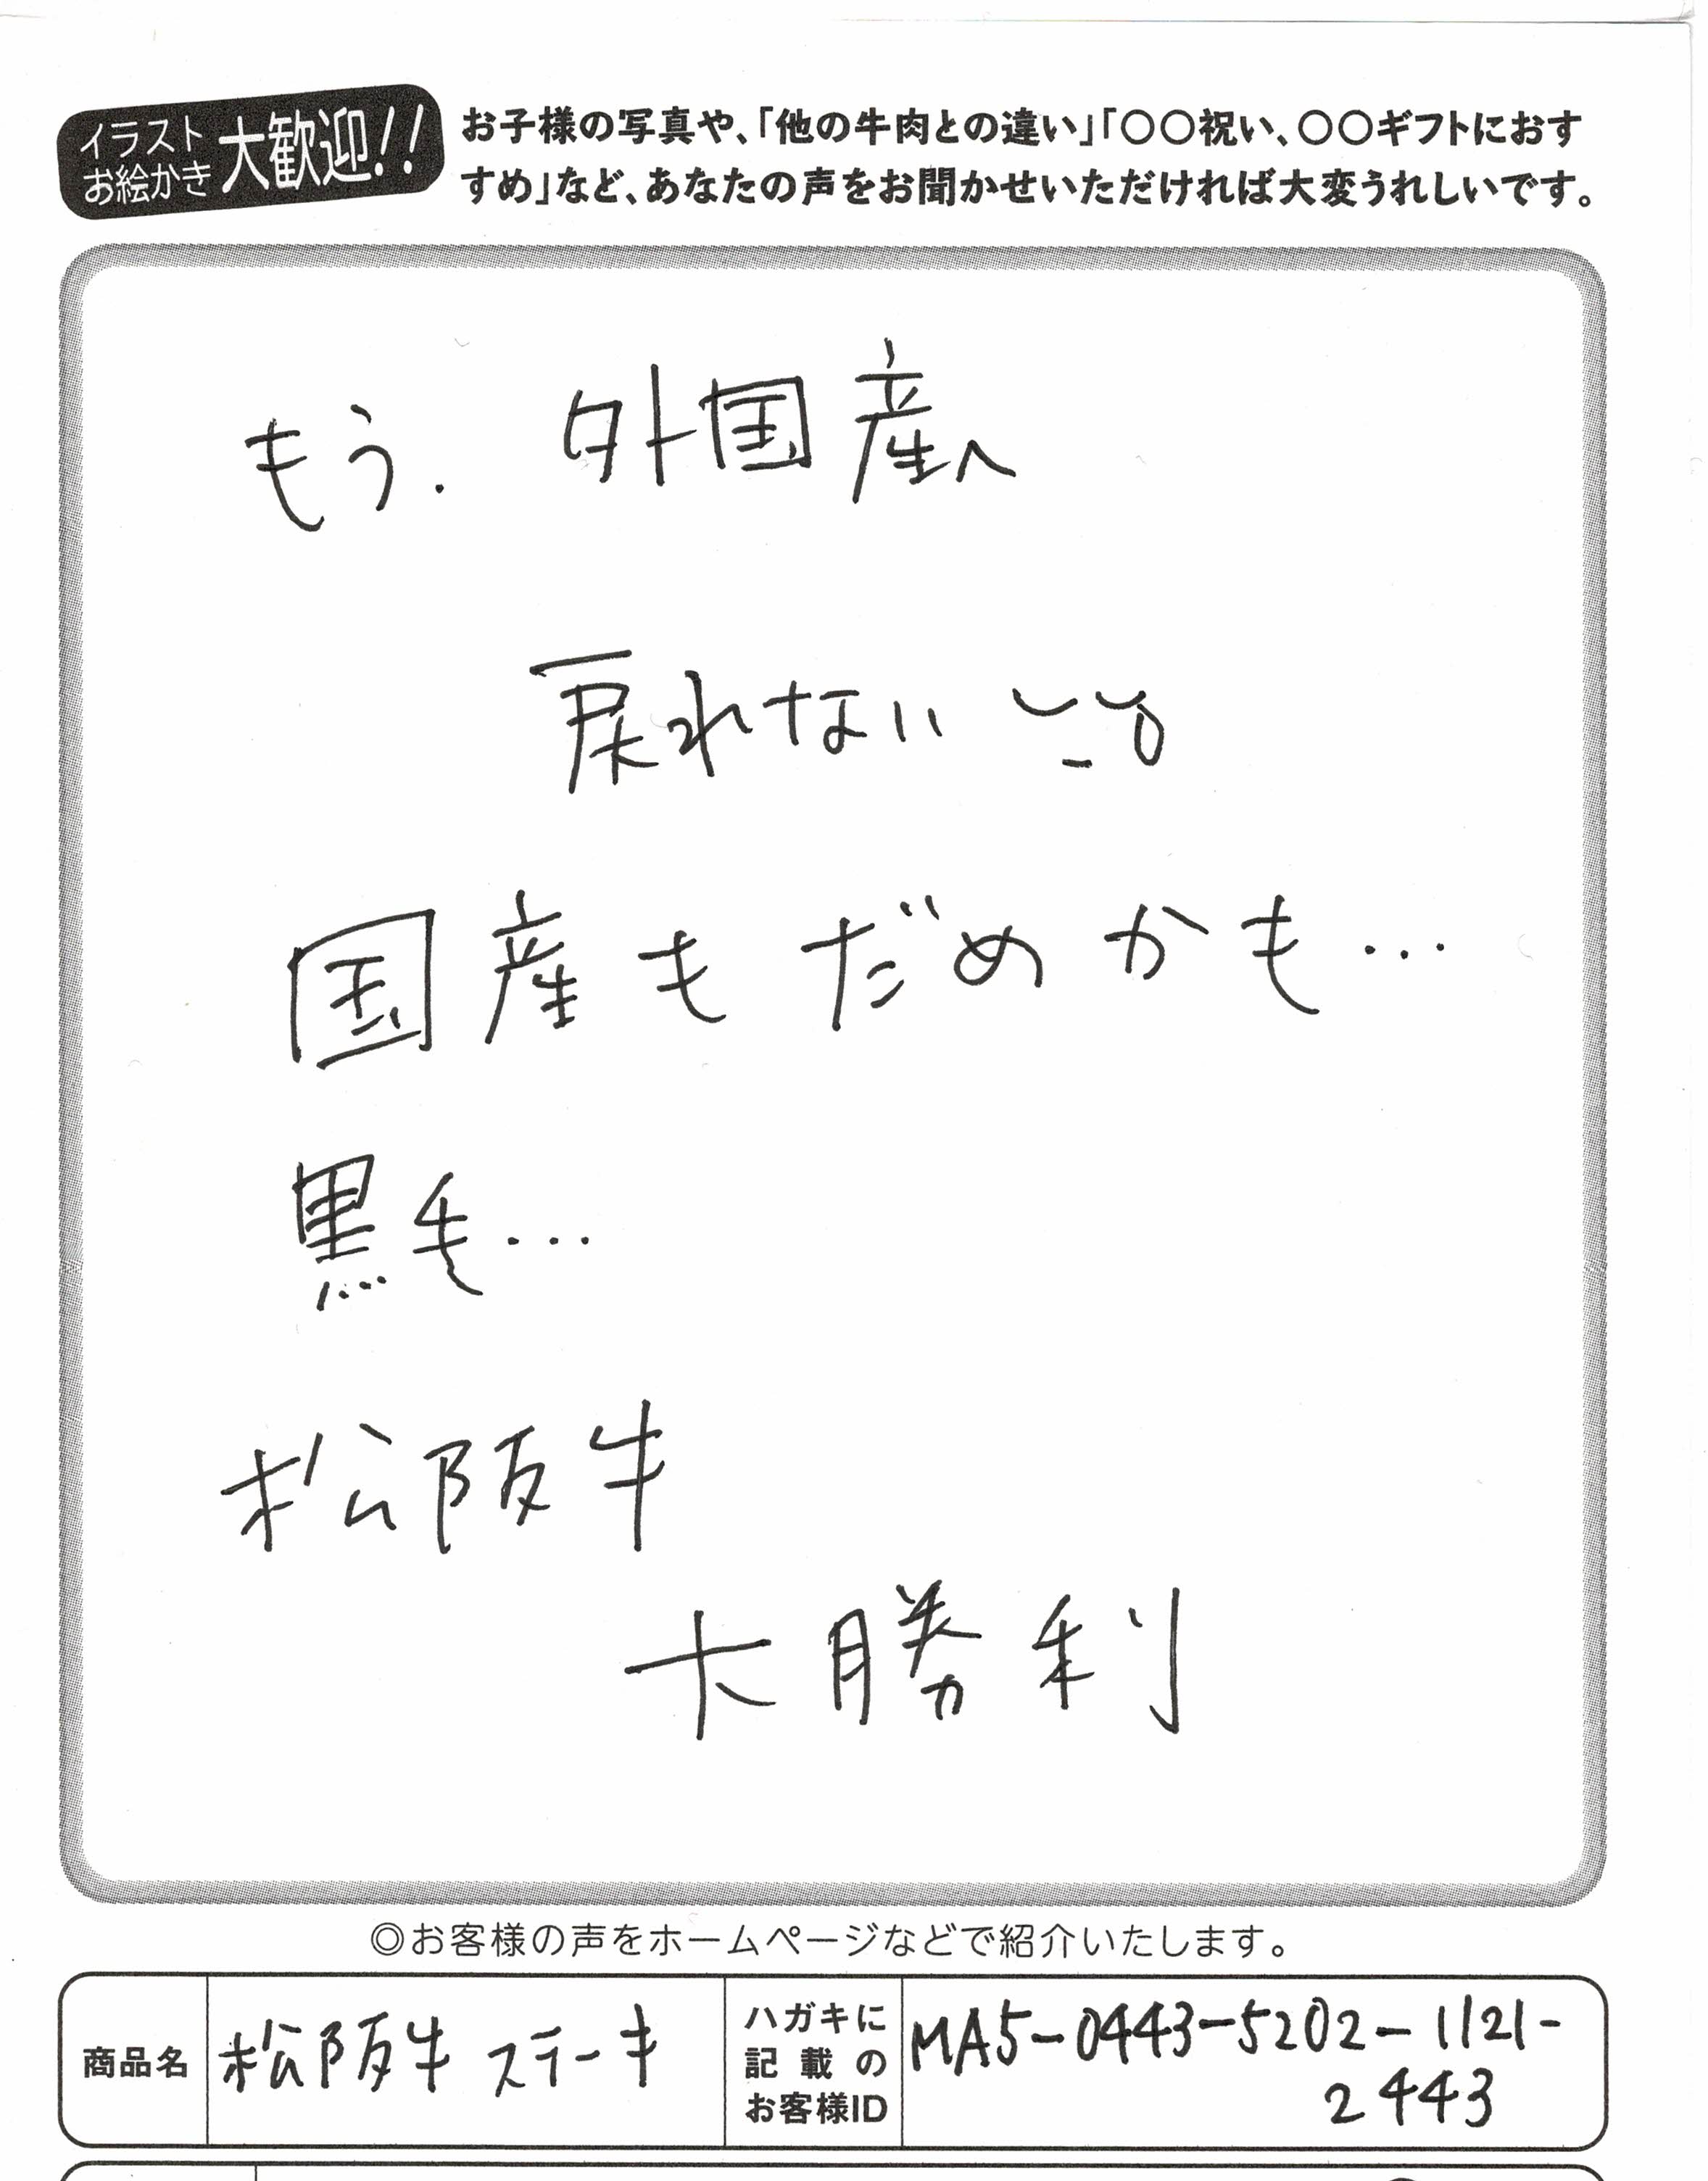 イラスト
お絵かき
大歓迎!!
お子様の写真や、「他の牛肉との違い」「〇〇祝い、〇〇ギフトにおす
すめ」など、あなたの声をお聞かせいただければ大変うれしいです。
もう. 外国産へ
戻れない
国産もだめかも…
黒毛…
松阪牛
大勝利
◎お客様の声をホームページなどで紹介いたします。
商品名
松阪牛 ステーキ
ハガキに
記載の
お客様ID
MA5-0443-5202-1121-
2443